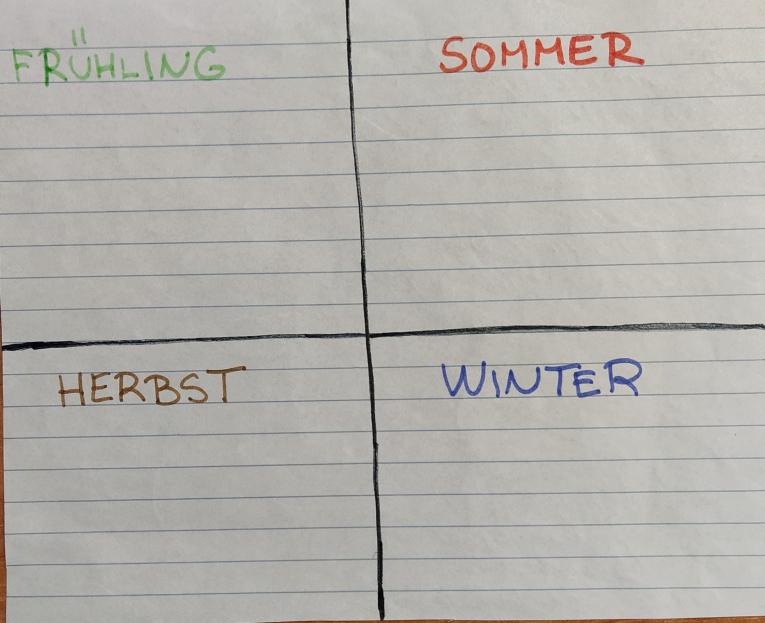 FRÜHLING
SOMMER
HERBST
WINTER